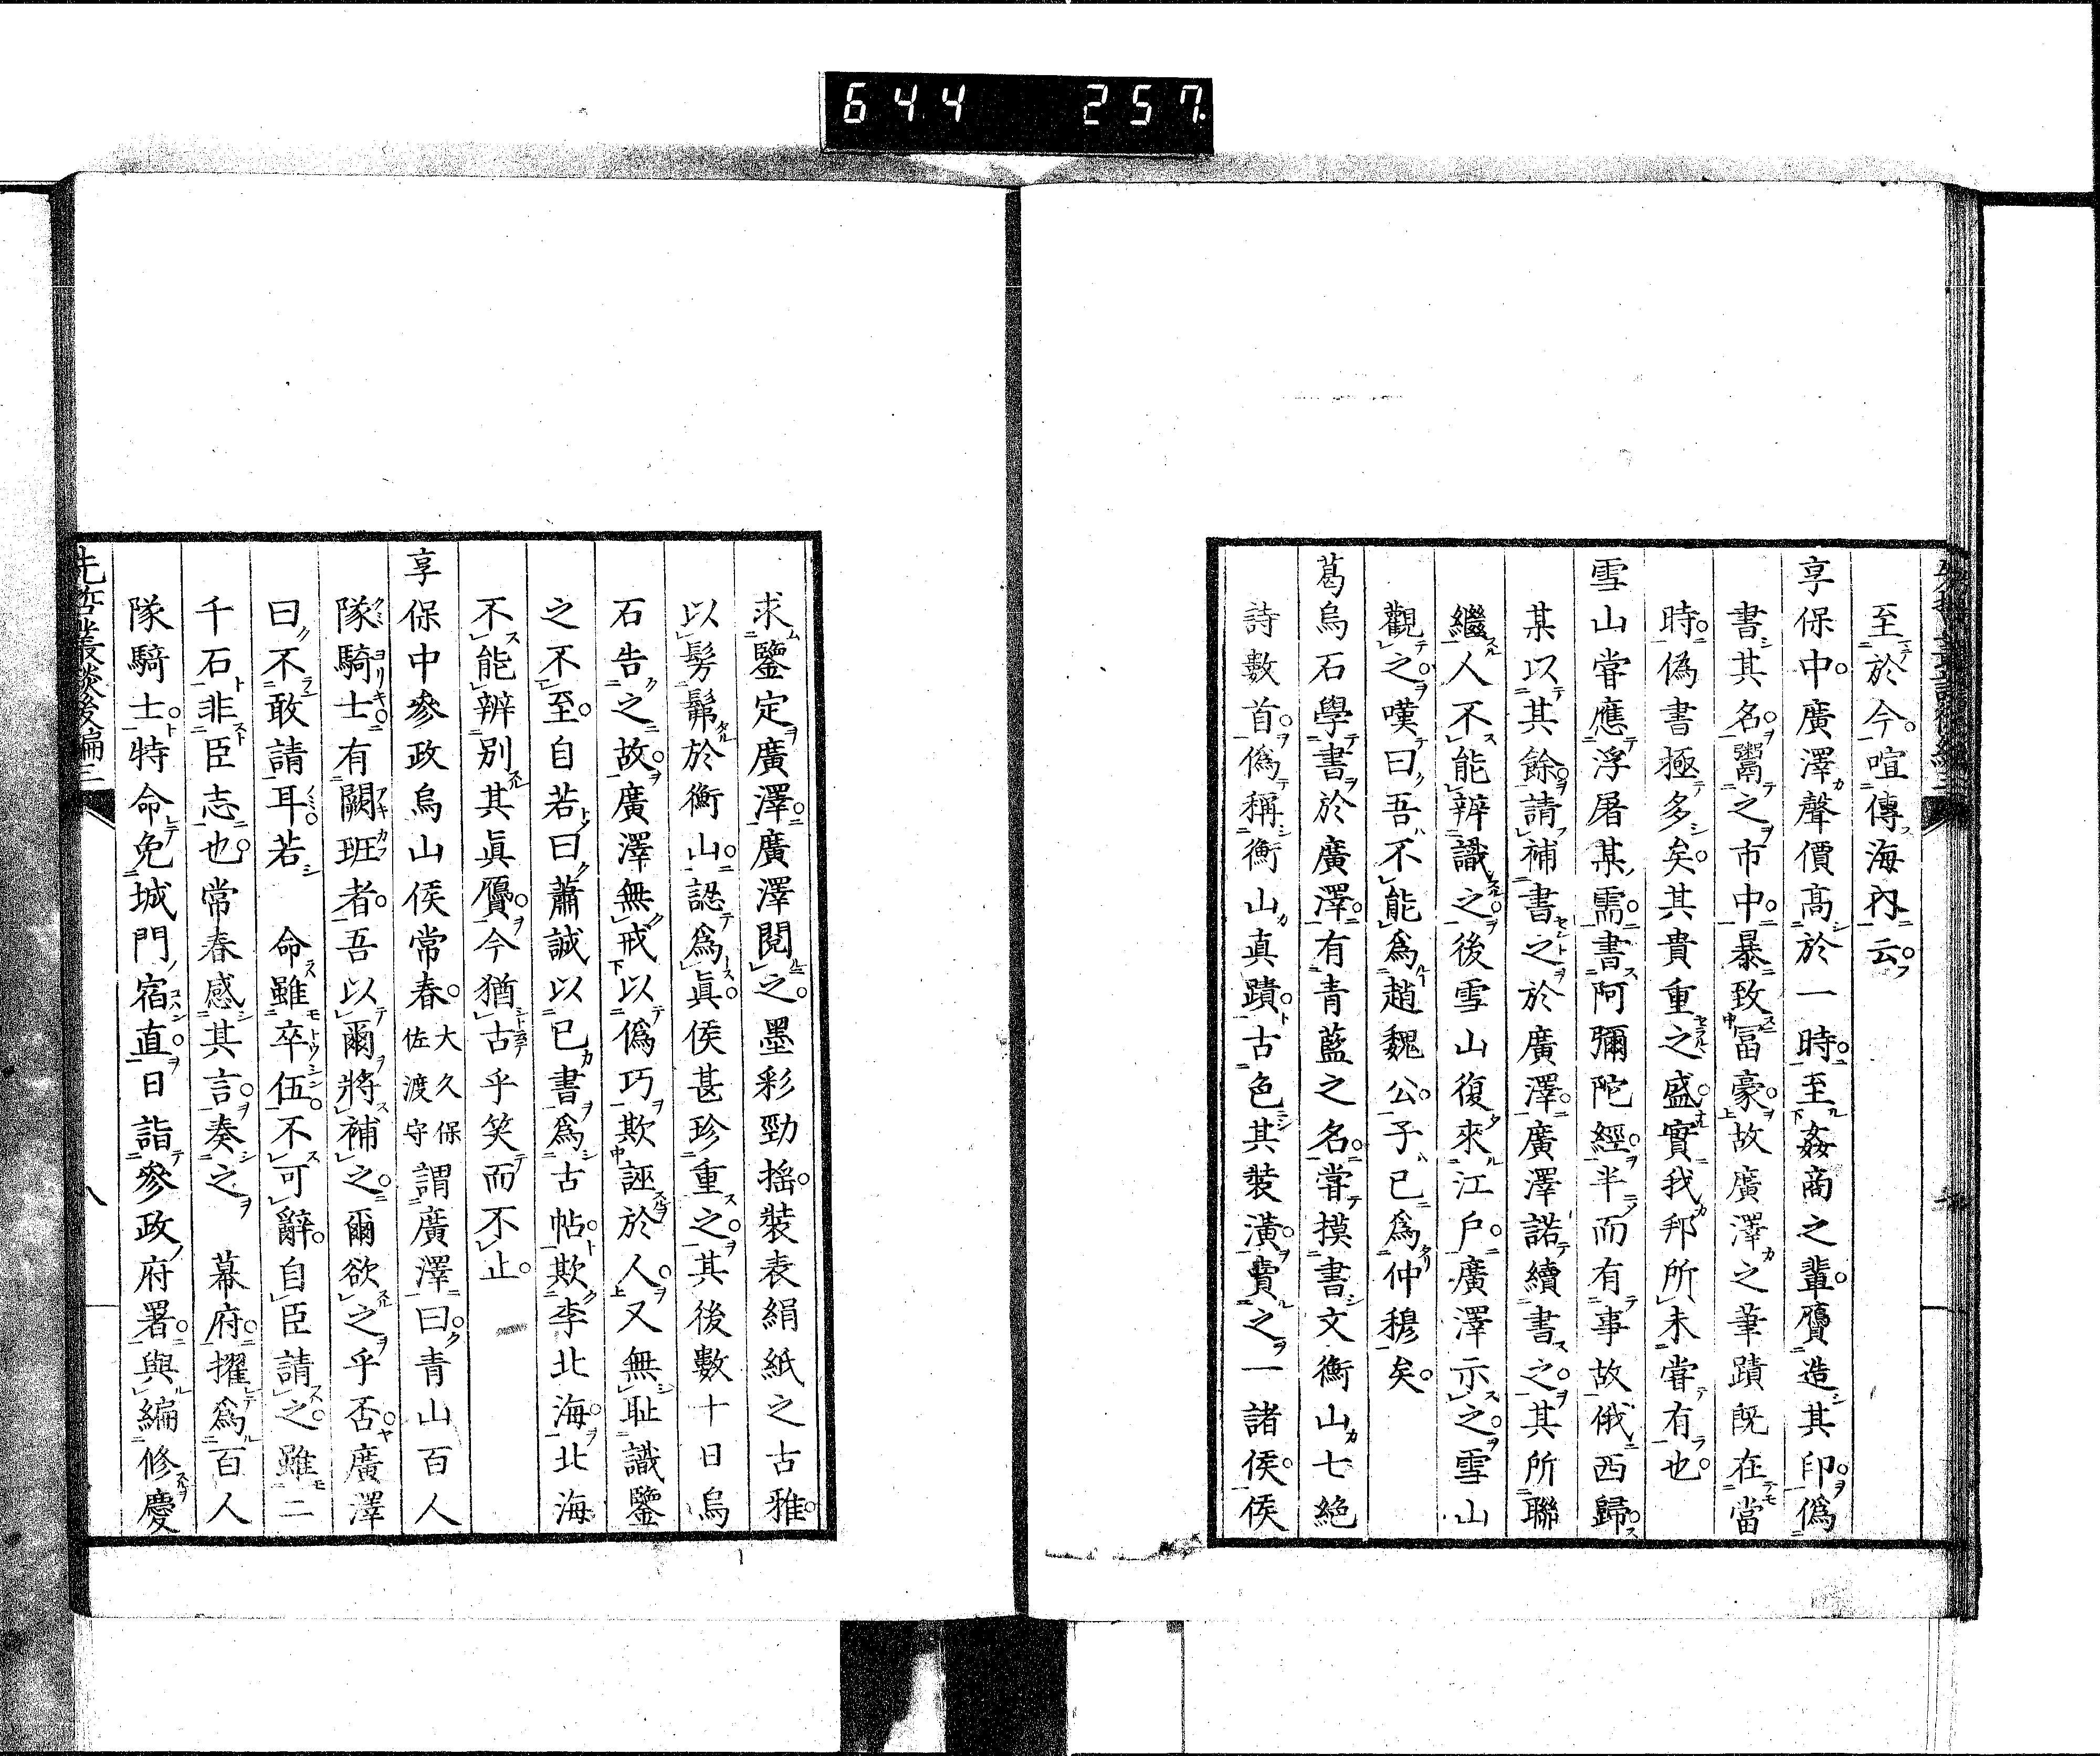 644 257
至於今喧傳海內云
享保中廣澤聲價高於一時至姦商之輩贋造其印僞
書其名鬻之市中暴致冨豪故廣澤之筆蹟旣在當
時僞書極多矣其貴重之盛實我邦所未甞有也
雪山甞應浮屠某需書阿彌陀經半而有事故俄西歸
某以其餘請補書之於廣澤廣澤諾續書之其所聯
繼人不能辨識之後雪山復來江戶廣澤示之雪山
觀之嘆曰吾不能爲趙魏公子已爲仲穆矣
葛烏石學書於廣澤有青藍之名甞摸書文衡山七絕
詩數首僞稱衡山真蹟古色其裝潢賣之一諸侯侯
求鑒定廣澤廣澤閱之墨彩勁搖裝表絹紙之古雅
以髣髴於衡山認爲眞侯甚珍重之其後數十日烏
石告之故廣澤無戒以僞巧欺誣於人又無恥識鑒
之不至自若曰蕭誠以已書爲古帖欺李北海北海
不能辨別其眞贋今猶古乎笑而不止
享保中參政烏山侯常春大久保佐渡守謂廣澤曰青山百人
隊騎士有闕班者吾以爾將補之爾欲之乎否廣澤
曰不敢請耳若 命雖卒伍不可辭自臣請之雖二
千石非臣志也常春感其言奏之 幕府擢爲百人
隊騎士特命免城門宿直日詣參政府署與編修慶
先哲叢談後編三
八